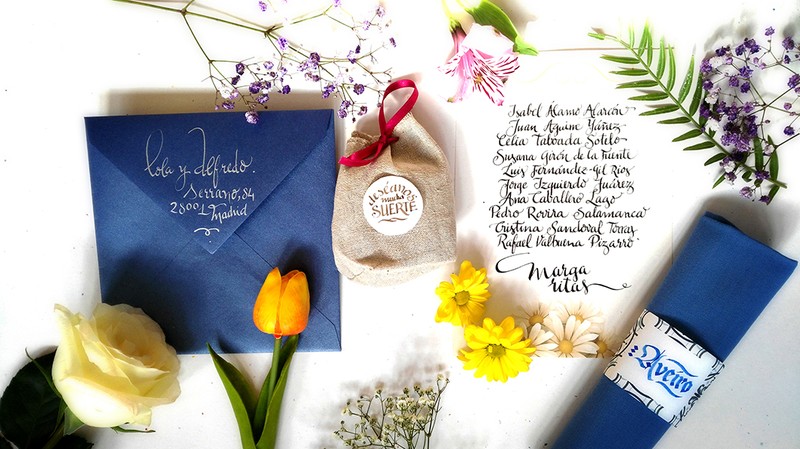 Lola y Alfredo.
Serrano, 84
28001 Madrid
deseános
mucha
SUERTE
Isabel Álamo Alarcón
Juan Aguirre Yáñez
Celia Taboada Sotelo
Susana Girón de la Fuente
Luis Fernández-Gil Ríos
Jorge Izquierdo Juárez
Ana Caballero Lago
Pedro Rovira Salamanca
Cristina Sandoval Torres
Rafael Valbuena Pizarro
Marga
ritas
Aveiro